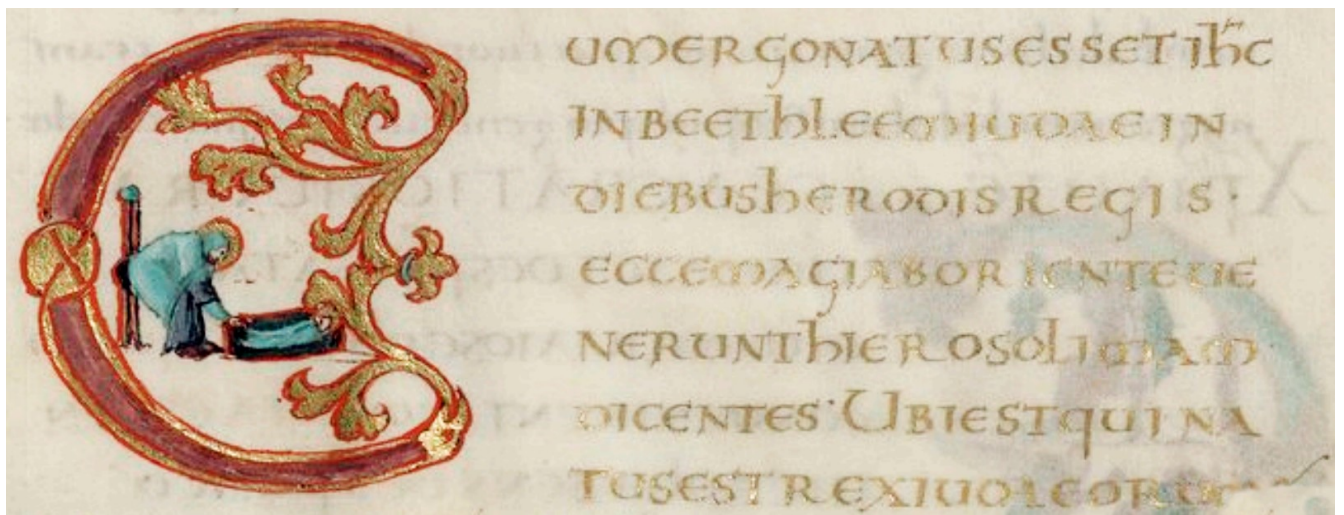 CUMERGONATUSESSETIhC
INBEEThLEEMIUDAEIN
DIEBUShERODISREGIS·
ECCEMAGIABORIENTEUE
NERUNThIEROSOLIMAM
DICENTES·UBIESTQUINA
TUSESTREXIUDAEORUM